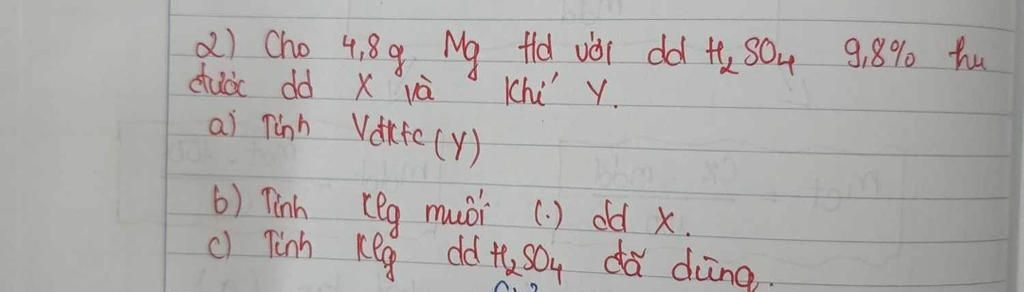 2) Cho 4,8g Mg td với dd H₂SO₄ 9,8% thu
được dd X và khí Y.
a) Tính Vđktc (Y)
b) Tính klg muối (.) dd X.
c) Tính klg dd H₂SO₄ đã dùng.